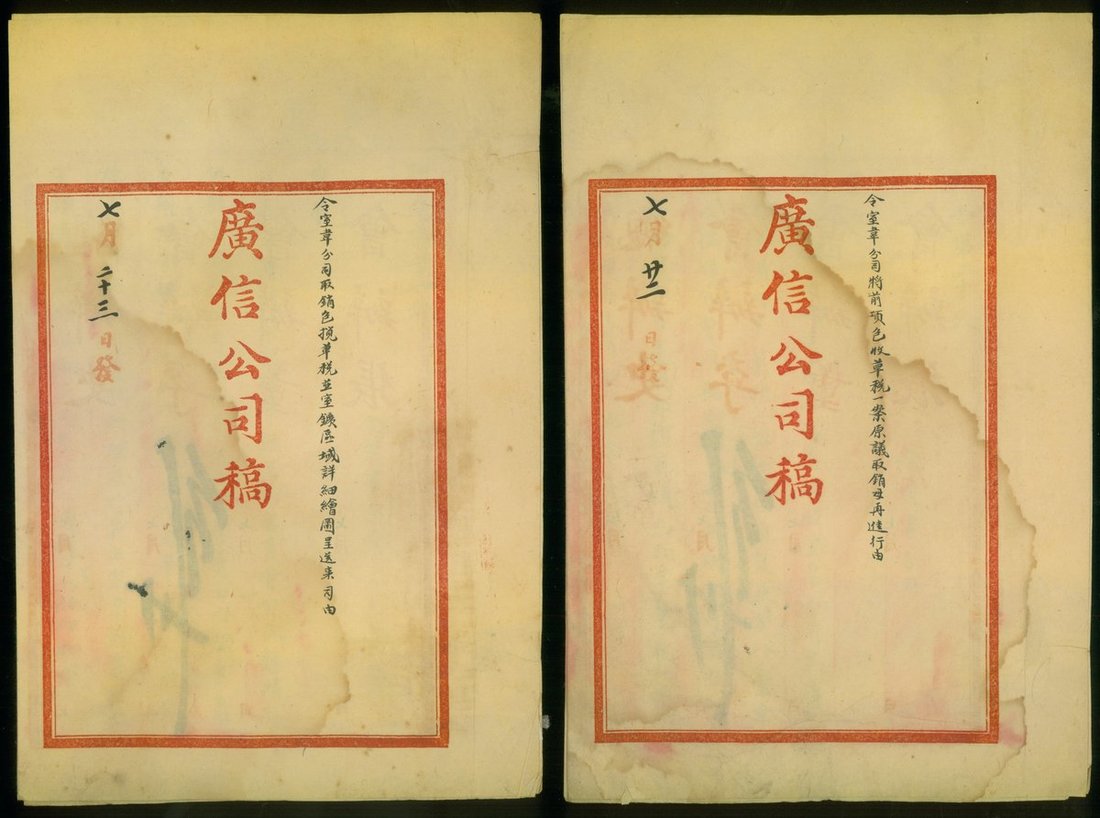 令室韋分司取銷包攬草稅並室鑛區域詳細繪圖呈送來司由
廣信公司稿
七月二十三日發
令室韋分司將前項包收草稅一案原議取銷毋再進行由
廣信公司稿
七 廿二 日